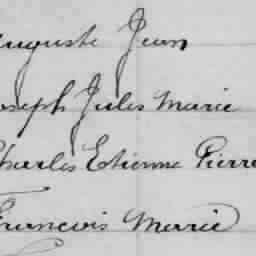 Auguste Jean
Joseph Jules Marie
Charles Etienne Pierre
Francois Marie